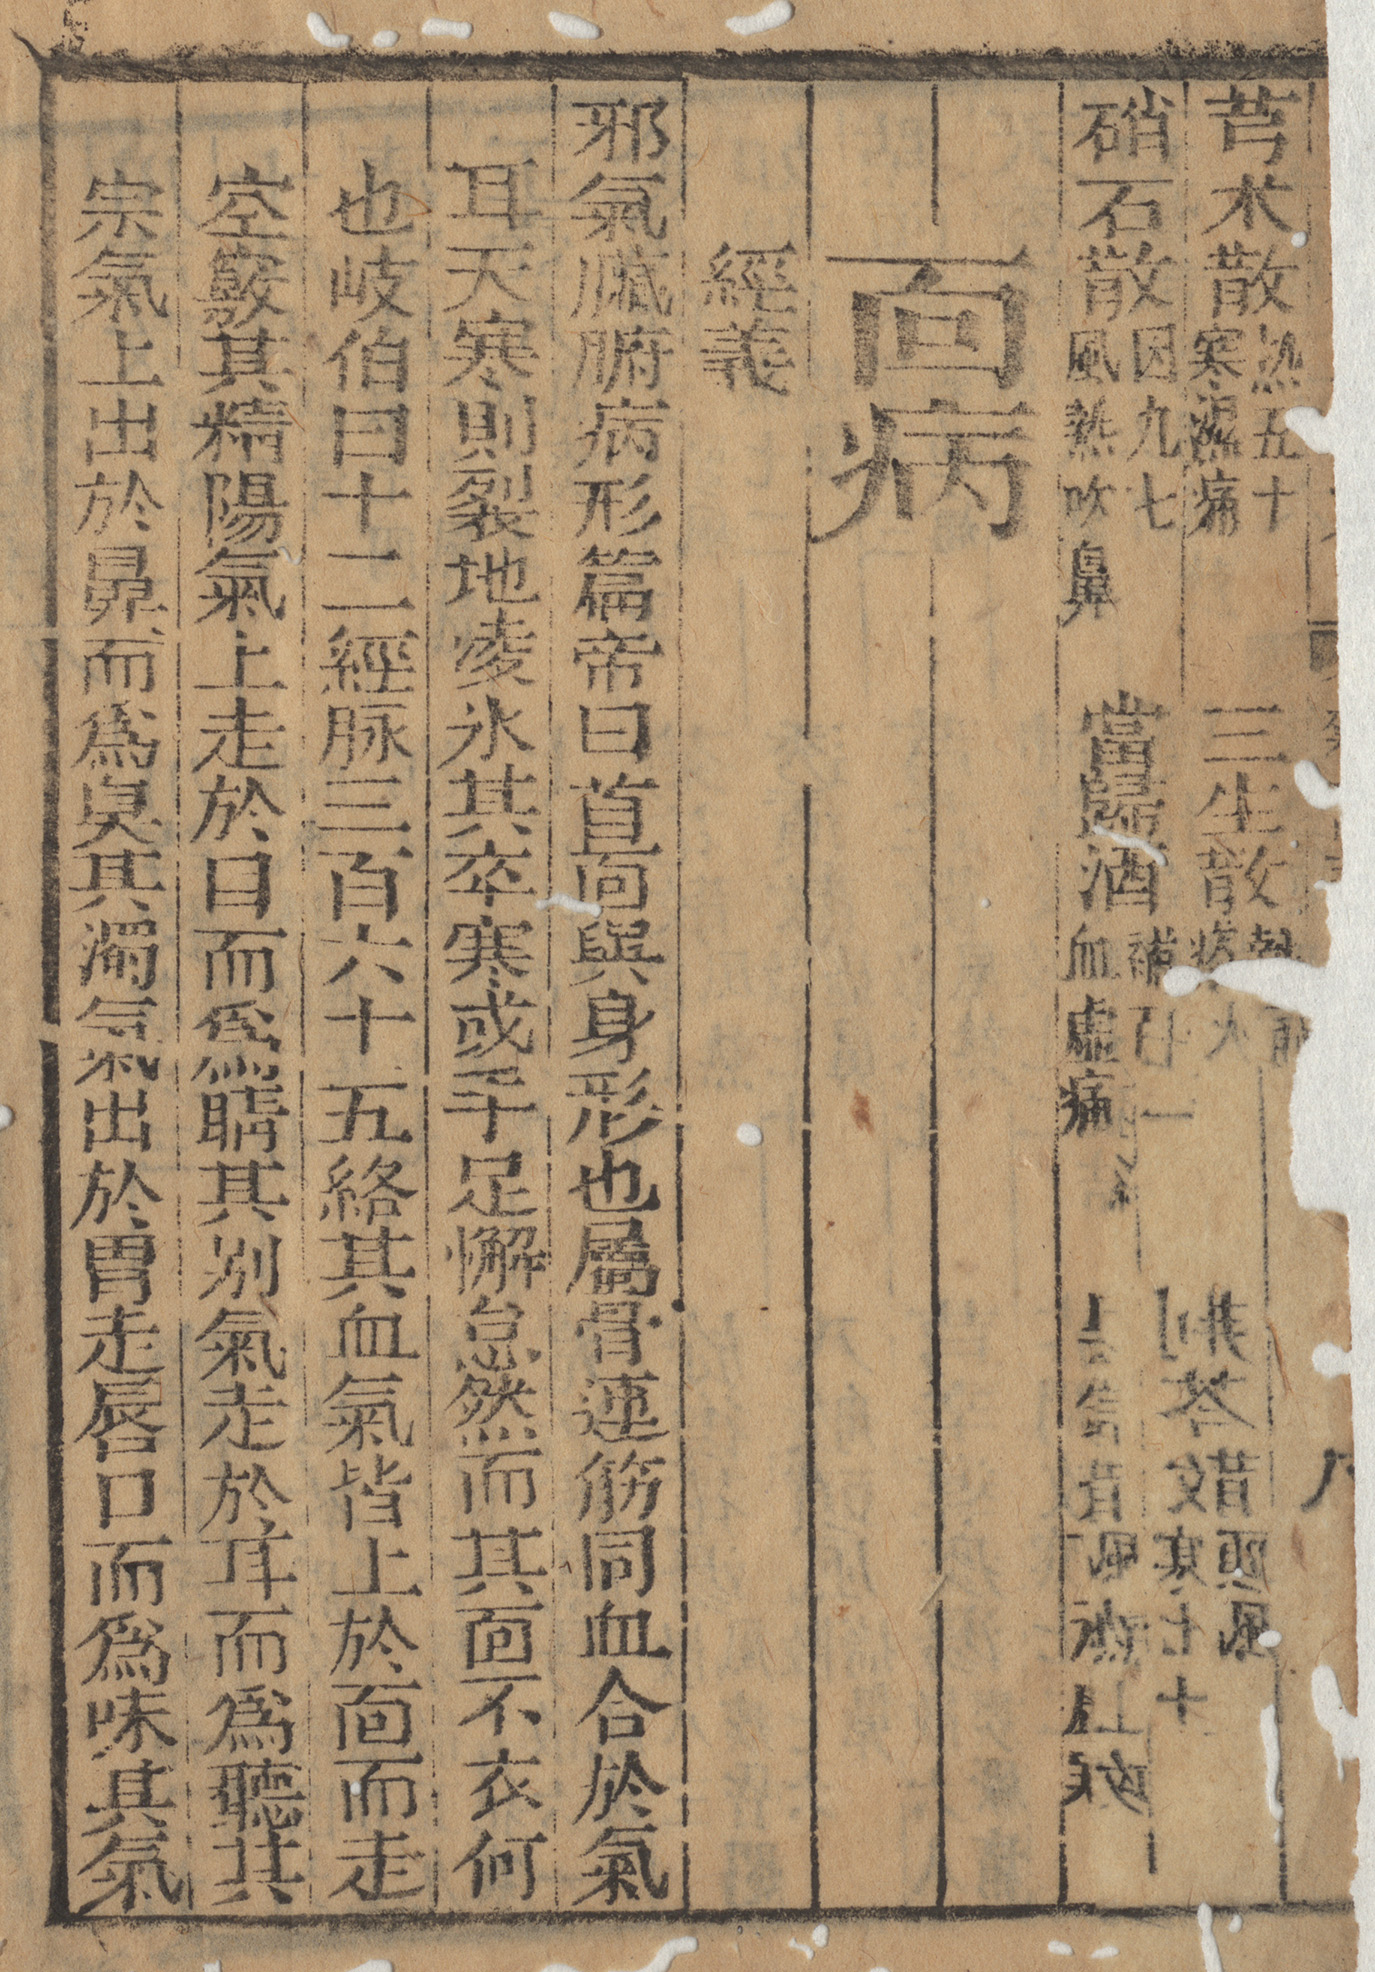 芎朮散 熱五十 寒濕痛 三生散 痰火
硝石散 因九七 風熱吹鼻 當歸酒 補 一 血虛痛
面病
經義
邪氣臟腑病形篇帝曰首面與身形也屬骨連筋同血合於氣
耳天寒則裂地凌氷其卒寒或手足懈怠然而其面不衣何
也岐伯曰十二經脉三百六十五絡其血氣皆上於面而走
空竅其精陽氣上走於目而爲睛其別氣走於耳而爲聽其
宗氣上出於鼻而爲臭其濁氣出於胃走唇口而爲味其氣